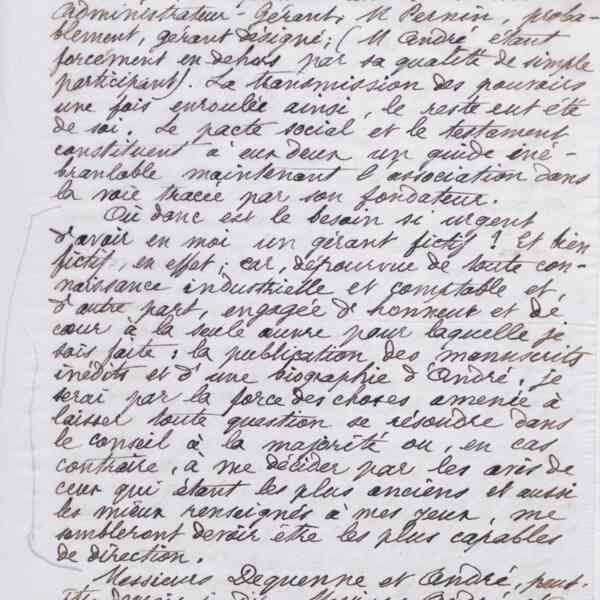 Administrateur-Gérant, M Pernin, proba-
blement, gérant désigné; (M André étant
forcément en dehors par sa qualité de simple
participant). La transmission des pouvoirs
une fois enroulée ainsi, le reste eut été
de soi. Le pacte social et le testament
constituent à eux deux un guide iné-
branlable maintenant l'association dans
la voie tracée par son fondateur.
Où donc est le besoin si urgent
d'avoir en moi un gérant fictif? Et bien
fictif, en effet; car, dépourvue de toute con-
naissance industrielle et comptable et,
d'autre part, engagée d'honneur et de
cœur à la seule œuvre pour laquelle je
sois faite: la publication des manuscrits
inédits et d'une biographie d'André, je
serai par la force des choses amenée à
laisser toute question se résoudre dans
le conseil à la majorité ou, en cas
contraire, à me décider par les avis de
ceux qui étant les plus anciens et aussi
les mieux renseignés à mes yeux, me
sembleront devoir être les plus capables
de direction.
Messieurs Dequenne et André, peut-